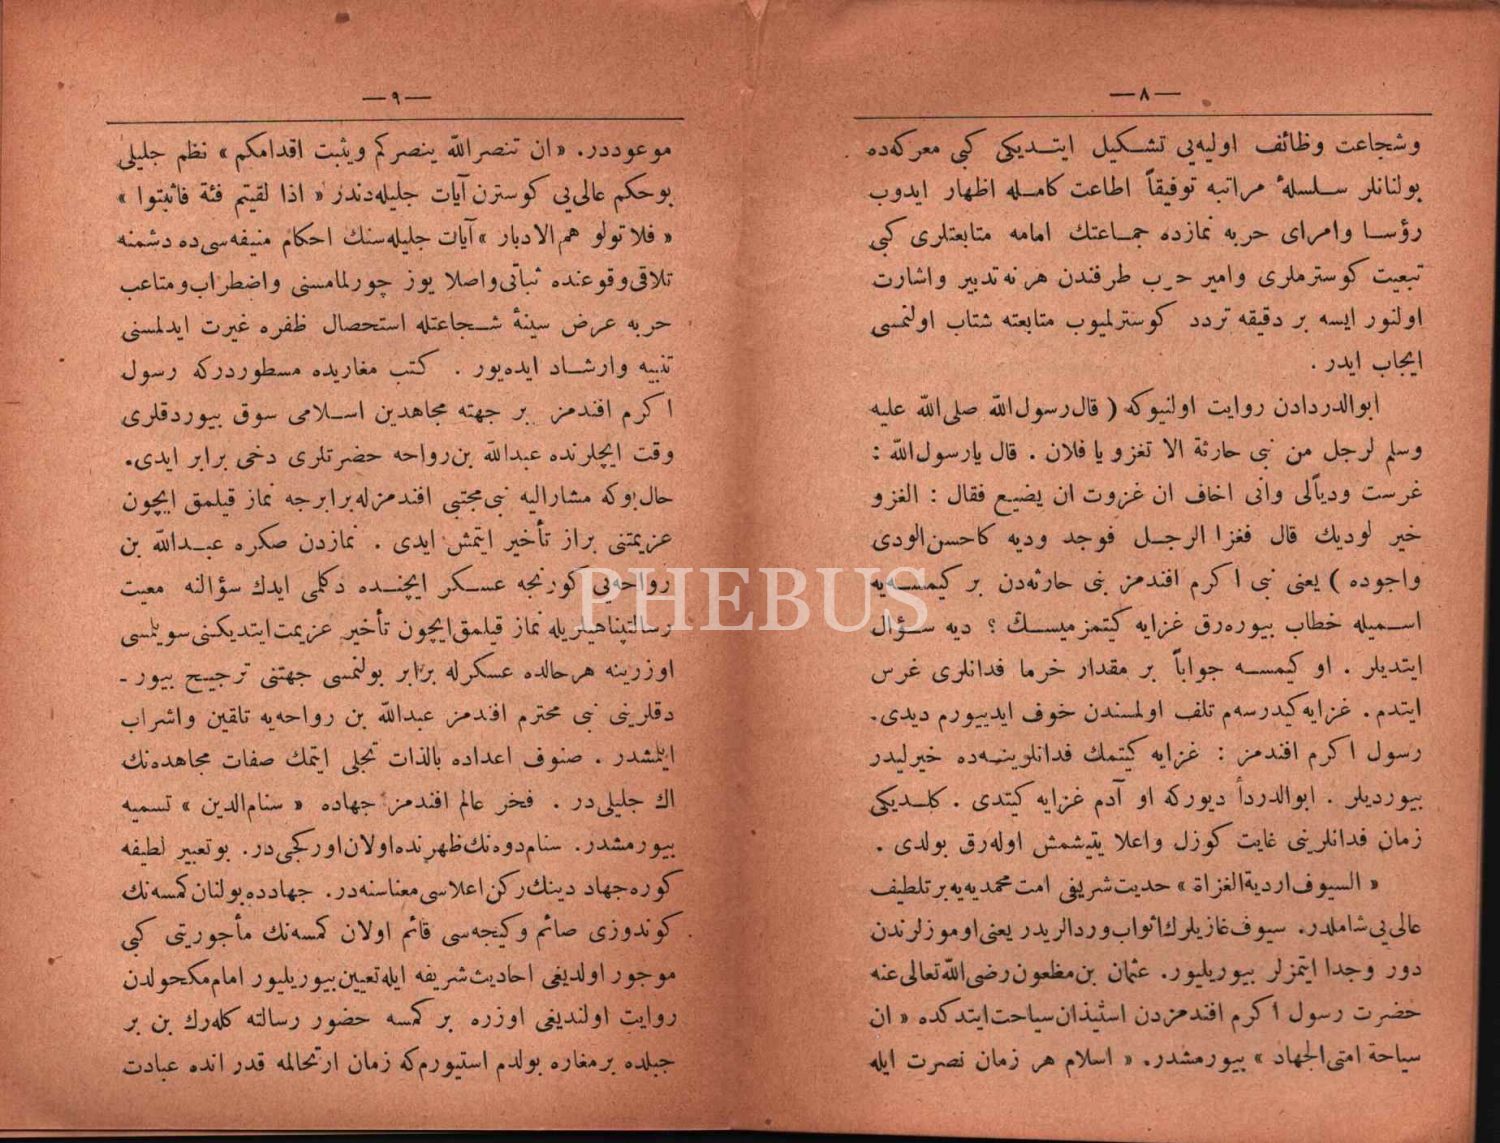 — ٨ —
وشجاعت وظائف اوليه‌يى تشكيل ايتديكى كبى معركه‌ده
بولنانلر سلسلهٔ مراتبه توفيقاً اطاعت كامله اظهار ايدوب
رؤسا وامراى حربه نمازده جماعتك امامه متابعتلرى كبى
تبعيت كوسترملرى وامير حرب طرفندن هر نه تدبير واشارت
اولنور ايسه بر دقيقه تردد كوسترلميوب متابعته شتاب اولنمسى
ايجاب ايدر .
ابوالدردادن روايت اولنيوركه ( قال رسول الله صلى الله عليه
وسلم لرجل من نبى حارثة الا تغزو يا فلان . قال يارسول الله :
غرست وديالى وانى اخاف ان غزوت ان يضيع فقال : الغزو
خير لوديك قال فغزا الرجل فوجد وديه كاحسن الودى
واجوده ) يعنى نبى اكرم افندمز بنى حارثه‌دن بر كيمسه‌يه
اسميله خطاب بيوره‌رق غزايه كيتمزميسك ؟ ديه سؤال
ايتديلر . او كيمسه جواباً بر مقدار خرما فدانلرى غرس
ايتدم . غزايه كيدرسه‌م تلف اولمسندن خوف ايدييورم ديدى.
رسول اكرم افندمز : غزايه كيتمك فدانلرينه‌ده خيرليدر
بيورديلر . ابوالدردأ ديوركه او آدم غزايه كيتدى . كلديكى
زمان فدانلرينى غايت كوزل واعلا يتيشمش اوله‌رق بولدى .
« السيوف اردية الغزاة » حديث شريفى امت محمديه‌يه بر تلطيف
عالى‌يى شاملدر. سيوف غازيلرك اثواب وردالريدر يعنى اوموزلرندن
دور وجدا ايتمزلر بيوريليور. عثمان بن مظعون رضى الله تعالى عنه
حضرت رسول اكرم افندمزدن استيذان سياحت ايتدكده « ان
سياحة امتى الجهاد » بيورمشدر. « اسلام هر زمان نصرت ايله
— ٩ —
موعوددر. « ان تنصرالله ينصركم ويثبت اقدامكم » نظم جليلى
بوحكم عالى‌يى كوسترن آيات جليله‌دندر « اذا لقيتم فئة فاثبتوا »
« فلا تولو هم الادبار » آيات جليله‌سنك احكام منيفه‌سى‌ده دشمنه
تلاقى وقوعنده ثباتى واصلا يوز چورلمامسنى واضطراب ومتاعب
حربه عرض سينهٔ شجاعتله استحصال ظفره غيرت ايدلمسنى
تنبيه وارشاد ايده‌يور . كتب مغازيده مسطوردركه رسول
اكرم افندمز بر جهته مجاهدين اسلامى سوق بيوردقلرى
وقت ايچلرنده عبدالله بن رواحه حضرتلرى دخى برابر ايدى.
حال بوكه مشاراليه نبى مجتبى افندمزله برابرجه نماز قيلمق ايچون
عزيمتنى براز تأخير ايتمش ايدى . نمازدن صكره عبدالله بن
رواحه‌يى كورنجه عسكر ايچنده دكلمى ايدك سؤالنه معيت
رسالتپناهيلريله نماز قيلمق ايچون تأخير عزيمت ايتديكنى سويلمسى
اوزرينه هر حالده عسكرله برابر بولنمسى جهتنى ترجيح بيور -
دقلرينى نبى محترم افندمز عبدالله بن رواحه‌يه تلقين واشراب
ايلمشدر . صنوف اعداده بالذات تجلى ايتمك صفات مجاهده‌نك
اك جليلى‌در . فخر عالم افندمز جهاده « سنام الدين » تسميه
بيورمشدر. سنام دوه‌نك ظهرنده اولان اوركجى‌در. بو تعبير لطيفه
كوره جهاد دينك ركن اعلاسى معناسنه‌در. جهادده بولنان كمسه‌نك
كوندوزى صائم وكيجه‌سى قائم اولان كمسه‌نك مأجوريتى كبى
موجور اولديغى احاديث شريفه ايله تعيين بيوريليور امام مكحولدن
روايت اولنديغى اوزره بر كمسه حضور رسالته كله‌رك بن بر
جبلده بر مغاره بولدم استيورم كه زمان ارتحالمه قدر انده عبادت
PHEBUS